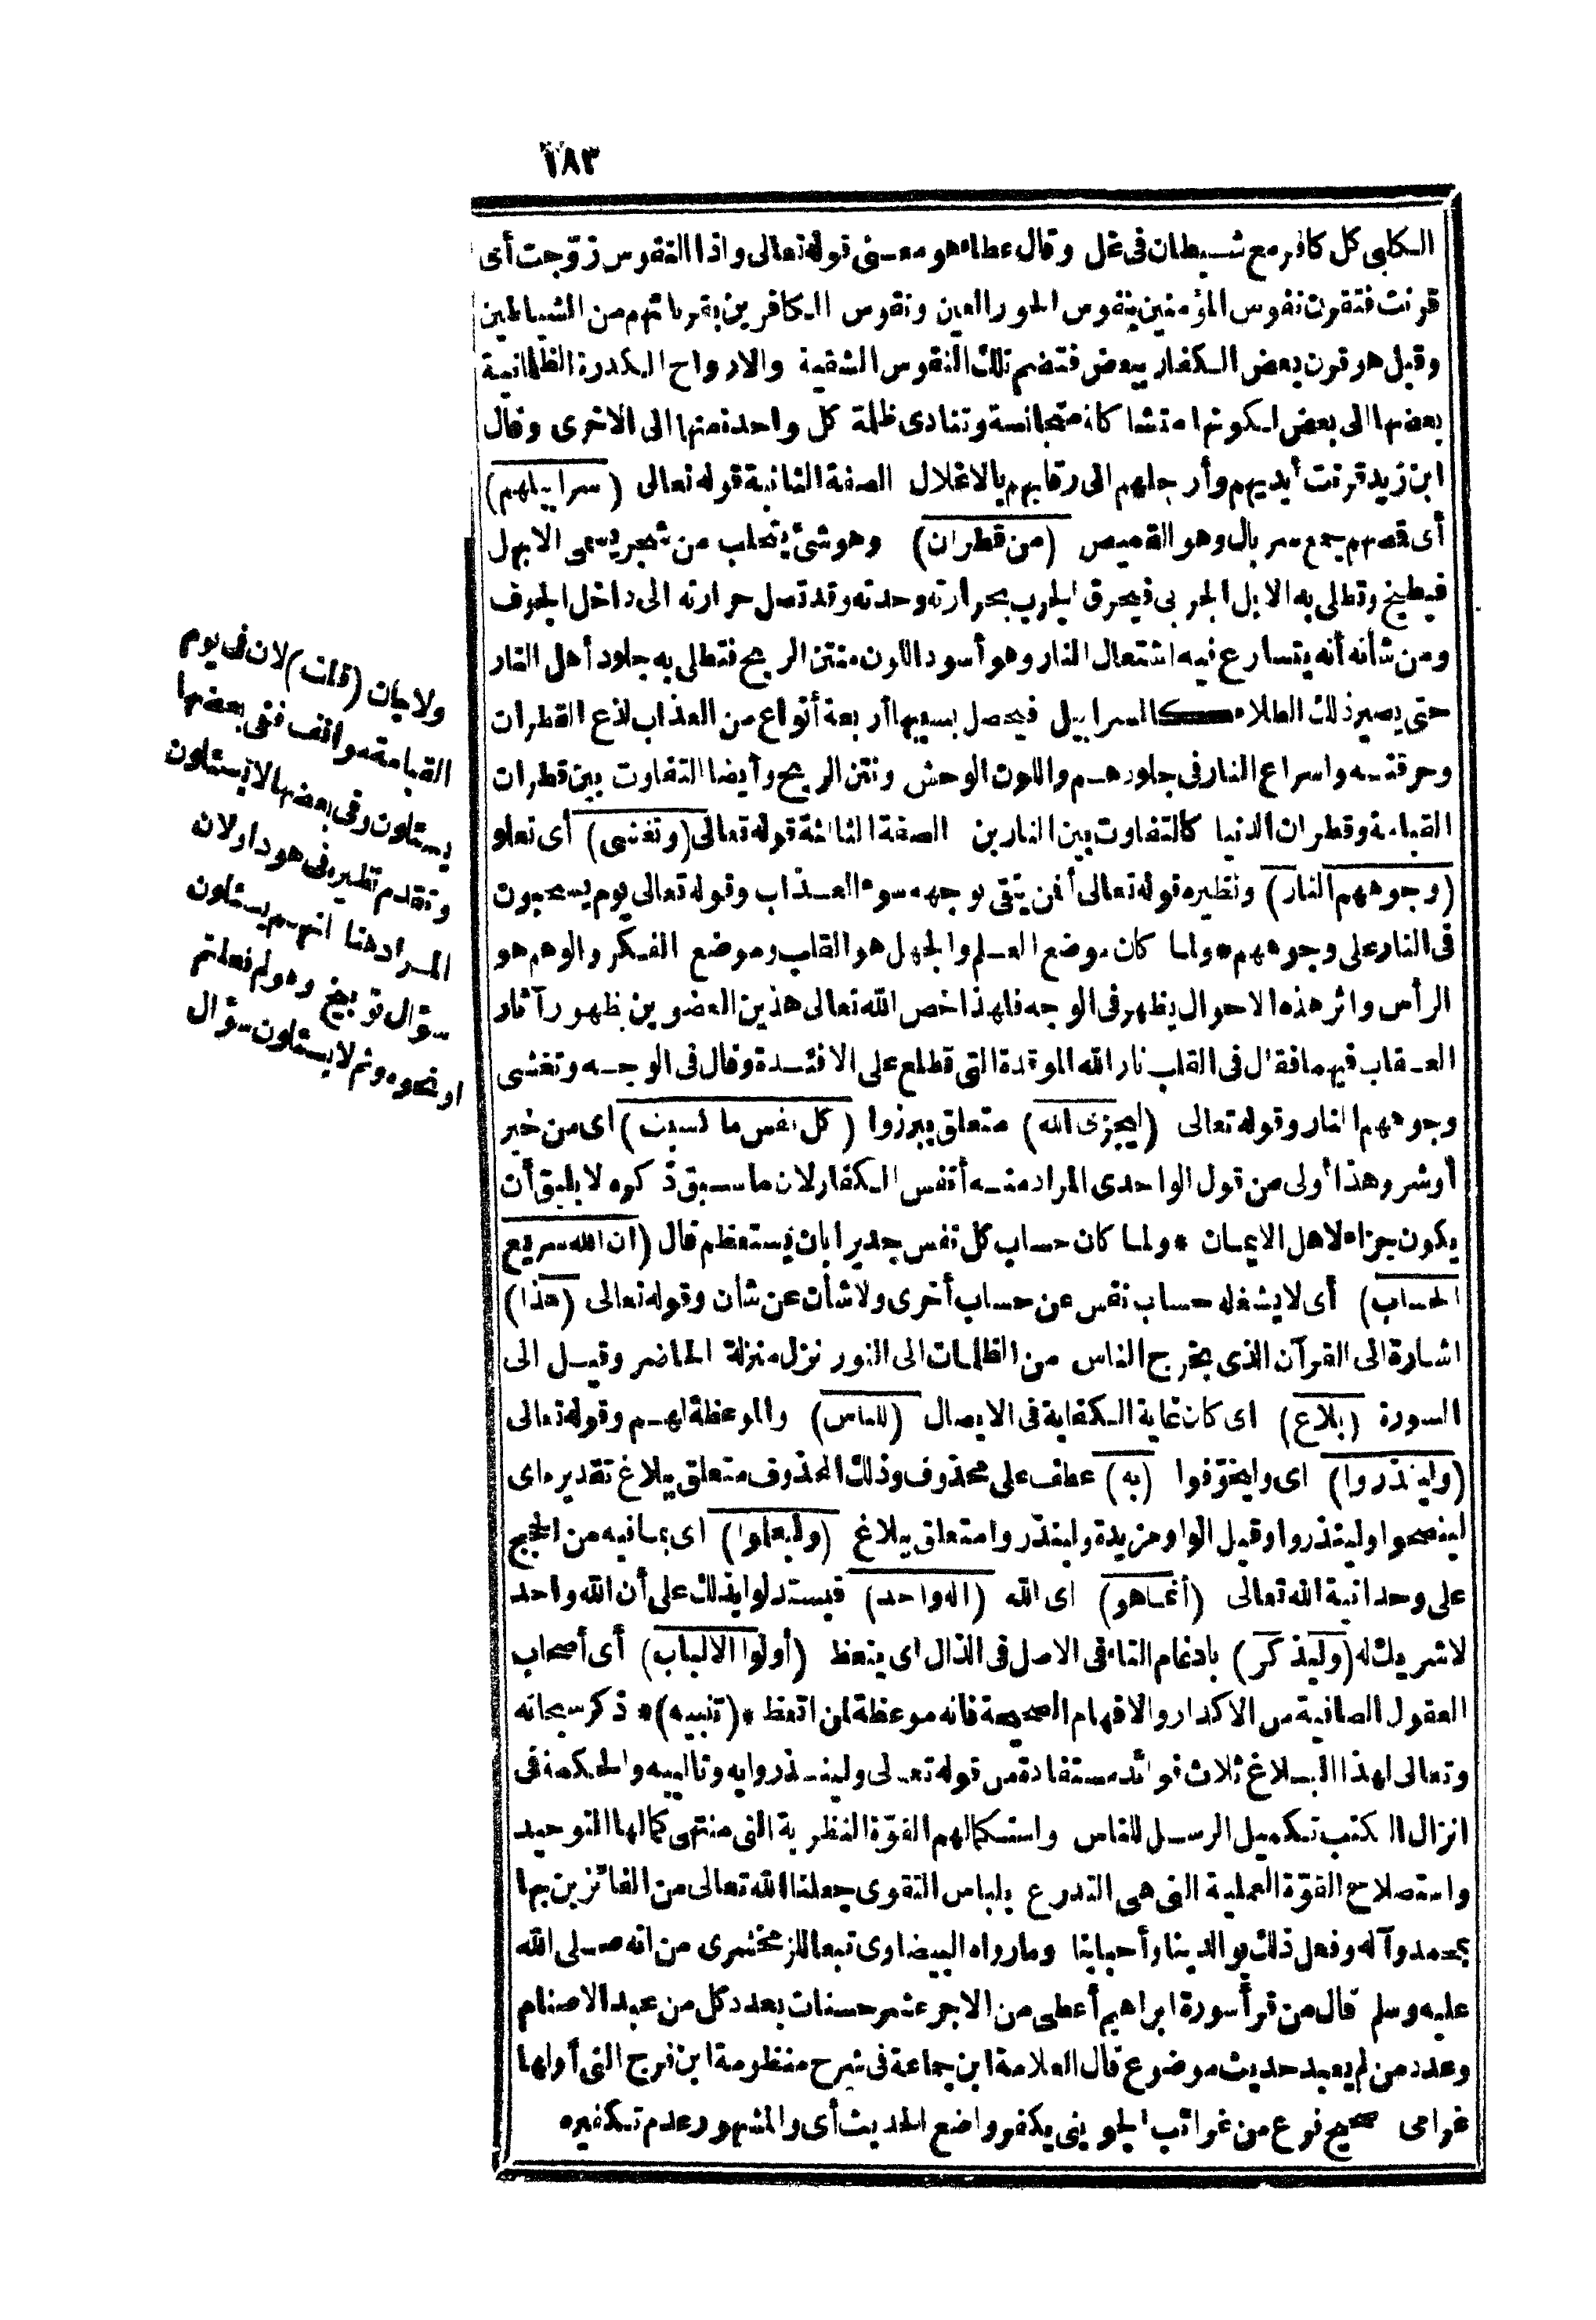 ١٨٣
الكلبى كل كافر مع شيطان فى غل وقال عطاء هو معنى قوله تعالى واذا النفوس زوّجت أى
قرنت فتقرن نفوس المؤمنين بنفوس الحور العين ونفوس الكافرين بقرنائهم من الشياطين
وقيل هو قرن بعض الكفار ببعض فتضم تلك النفوس الشقية والارواح الكدرة الظلمانية
بعضها الى بعض لكونها متشاكلة متجانسة وتنادى ظلمة كل واحدة منها الى الاخرى وقال
ابن زيد قرنت أيديهم وأرجلهم الى رقابهم بالاغلال الصفة الثانية قوله تعالى (سرابيلهم)
أى قمصهم جمع سربال وهو القميص (من قطران) وهو شئ يتحلب من شجر يسمى الابهل
فيطبخ وتطلى به الابل الجربى فيحرق الجرب بحرارته وحدته وقد تصل حرارته الى داخل الجوف
ومن شأنه أنه يتسارع فيه اشتعال النار وهو أسود اللون منتن الريح فتطلى به جلود أهل النار
حتى يصير ذلك الطلاء كالسرابيل فيحصل بسببها أربعة أنواع من العذاب لذع القطران
وحرقته واسراع النار فى جلودهم واللون الوحش ونتن الريح وأيضا التفاوت بين قطران
القيامة وقطران الدنيا كالتفاوت بين النارين الصفة الثالثة قوله تعالى (وتغشى) أى تعلو
(وجوههم النار) ونظيره قوله تعالى أفمن يتقى بوجهه سوء العذاب وقوله تعالى يوم يسحبون
فى النار على وجوههم * ولما كان موضع العلم والجهل هو القلب وموضع الفكر والوهم هو
الرأس واثر هذه الاحوال يظهر فى الوجه فلهذا خص الله تعالى هذين العضوين بظهور آثار
العقاب فيهما فقال فى القلب نار الله الموقدة التى تطلع على الافئدة وقال فى الوجه وتغشى
وجوههم النار وقوله تعالى (ليجزى الله) متعلق ببرزوا (كل نفس ما كسبت) اى من خير
أوشر وهذا أولى من قول الواحدى المراد منه أنفس الكفار لان ما سبق ذكره لا يليق أن
يكون جزاء لاهل الايمان * ولما كان حساب كل نفس جديرا بان يستعظم قال (ان الله سريع
الحساب) أى لا يشغله حساب نفس عن حساب أخرى ولا شأن عن شأن وقوله تعالى (هذا)
اشارة الى القرآن الذى يخرج الناس من الظلمات الى النور نزل منزلة الحاضر وقيل الى
السورة (بلاغ) اى كان غاية الكفاية فى الايصال (للناس) والموعظة لهم وقوله تعالى
(ولينذروا) اى وليخوّفوا (به) عطف على محذوف وذلك المحذوف متعلق ببلاغ تقديره اى
لينصحوا ولينذروا وقيل الواو مزيدة ولينذروا متعلق ببلاغ (وليعلموا) اى بما فيه من الحجج
على وحدانية الله تعالى (أنما هو) اى الله (اله واحد) فيستدلوا بذلك على أن الله واحد
لا شريك له (وليذكر) بادغام التاء فى الاصل فى الذال اى يتعظ (أولوا الالباب) أى أصحاب
العقول الصافية من الاكدار والافهام الصحيحة فانه موعظة لمن اتعظ * (تنبيه) * ذكر سبحانه
وتعالى لهذا البلاغ ثلاث فوائد مستفادة من قوله تعالى ولينذروا به وتالييه والحكمة فى
انزال الكتب تكميل الرسل للناس واستكمالهم القوّة النظرية التى منتهى كمالها التوحيد
واستصلاح القوّة العملية التى هى التدرع بلباس التقوى جعلنا الله تعالى من الفائزين بها
بمحمد وآله وفعل ذلك بوالدينا وأحبابنا وما رواه البيضاوى تبعا للزمخشرى من انه صلى الله
عليه وسلم قال من قرأ سورة ابراهيم أعطى من الاجر عشر حسنات بعدد كل من عبد الاصنام
وعدد من لم يعبد حديث موضوع قال العلامة ابن جماعة فى شرح منظومة ابن فرج التى أولها
غرامى صحيح فرع من غرائب الجوينى يكفر واضع الحديث أى والمشهور عدم تكفيره
ولا جان (قلت) لان فى يوم
القيامة مواقف ففى بعضها
يسئلون وفى بعضها لا يسئلون
وتقدم نظيره فى هود اولان
المراد هنا انهم يسئلون
سؤال توبيخ وهو لم فعلتم
او نحوه وثم لا يسئلون سؤال